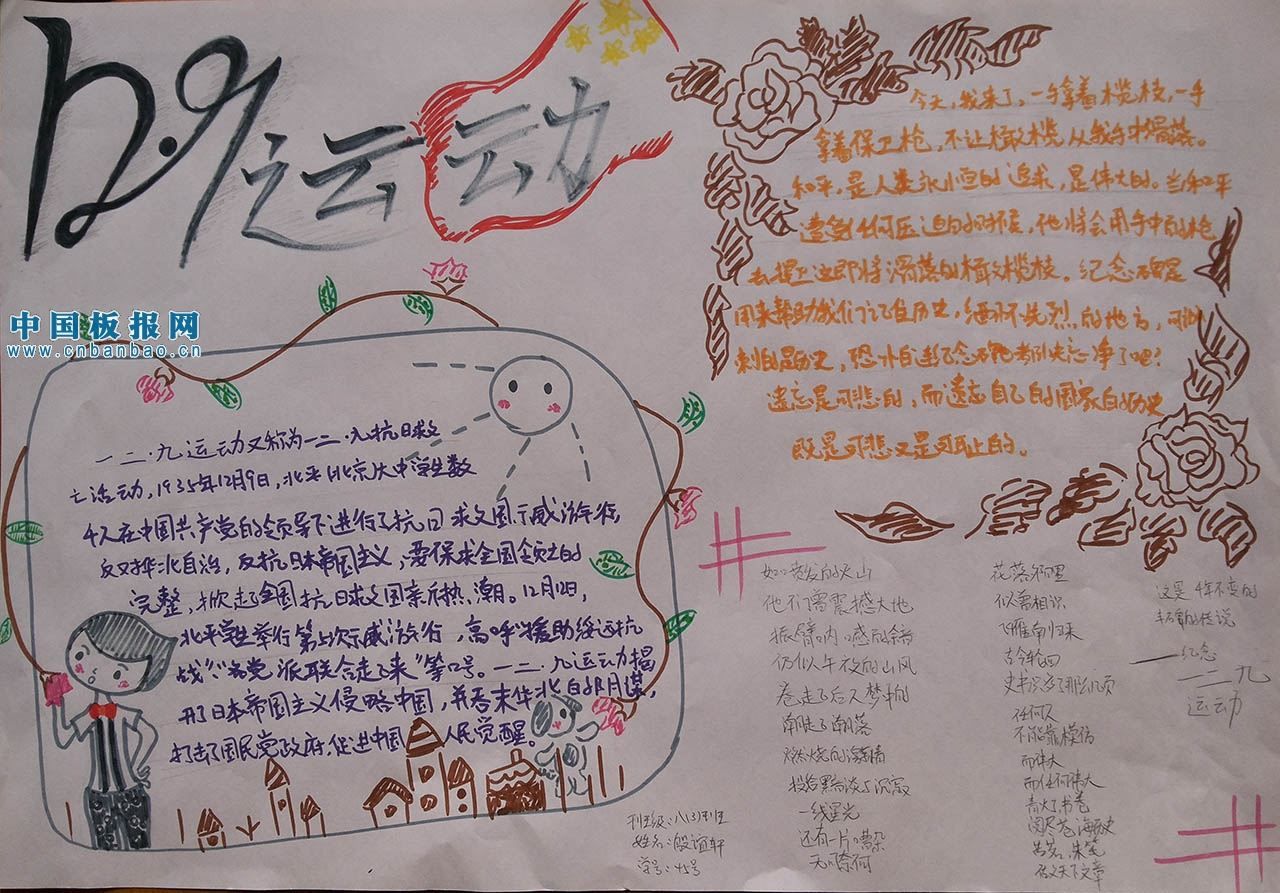 12.9运动
中国板报网
www.cnbanbao.cn
今天,我来了,一手拿着橄榄枝,一手
拿着保卫枪,不让橄榄从我手中滑落。
和平,是人类永恒的追求,是伟大的。当和平
遭受任何压迫的时候,他将会用手中的枪
去捍卫这即将滑落的橄榄枝。纪念碑是
用来帮助我们记住历史,缅怀先烈的地方,可
遗忘是可悲的,而遗忘自己的国家的历史
既是可悲又是可耻的。
一二·九运动又称为一二·九抗日救
亡活动,1935年12月9日,北平(北京)大中学生数
千人在中国共产党的领导下进行了抗日救国示威游行,
反对华北自治,反抗日本帝国主义,要保求全国领土的
完整,掀起全国抗日救国亲行热潮。12月12日,
北平学生举行第五次示威游行,高呼"援助绥远抗
战""各党派联合走了来"等口号。一二·九运动揭
开了日本帝国主义侵略中国,并吞来华北的阴谋,
打击了国民党政府,促进中国人民觉醒。
如喷发的火山
他们需震撼大地
振臂呐喊的余音
仍似午夜的山风
卷走了后人梦的
潮起了潮落
燃烧的激情
投给黑暗淡与沉寂
一线星光
还有一片嘈杂
无可奈何
花落
似曾相识
飞雁南归来
古今轮回
任何人
不能靠模仿
而伟大
而任何伟大
青灯书卷
阅尽苍海历史
朱笔
天下文章
这是千年不变的
传说
——纪念
一二九
运动
班级:八(3)班
姓名:殷谊轩
学号:45号